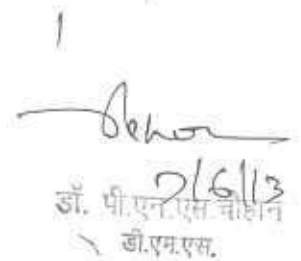 7/6/13
डॉ. पी.एन.एस चौहान
डी.एम.एस.